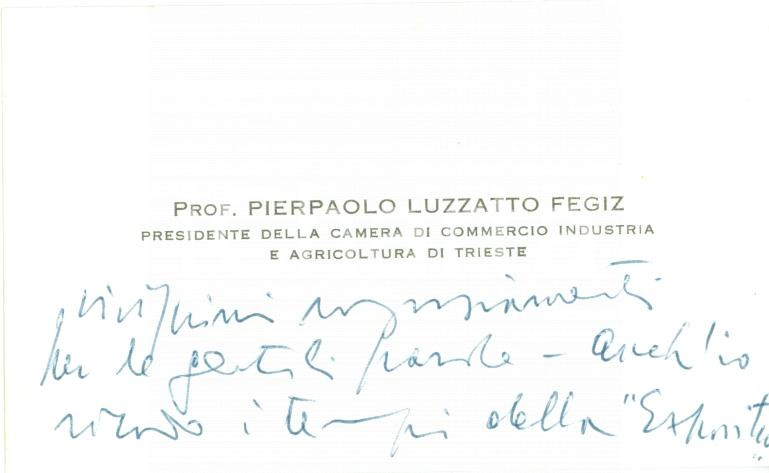 PROF. PIERPAOLO LUZZATTO FEGIZ
PRESIDENTE DELLA CAMERA DI COMMERCIO INDUSTRIA
E AGRICOLTURA DI TRIESTE
vivissimi ringraziamenti
per le gentili parole - anch'io
ricordo i tempi della "Exposit